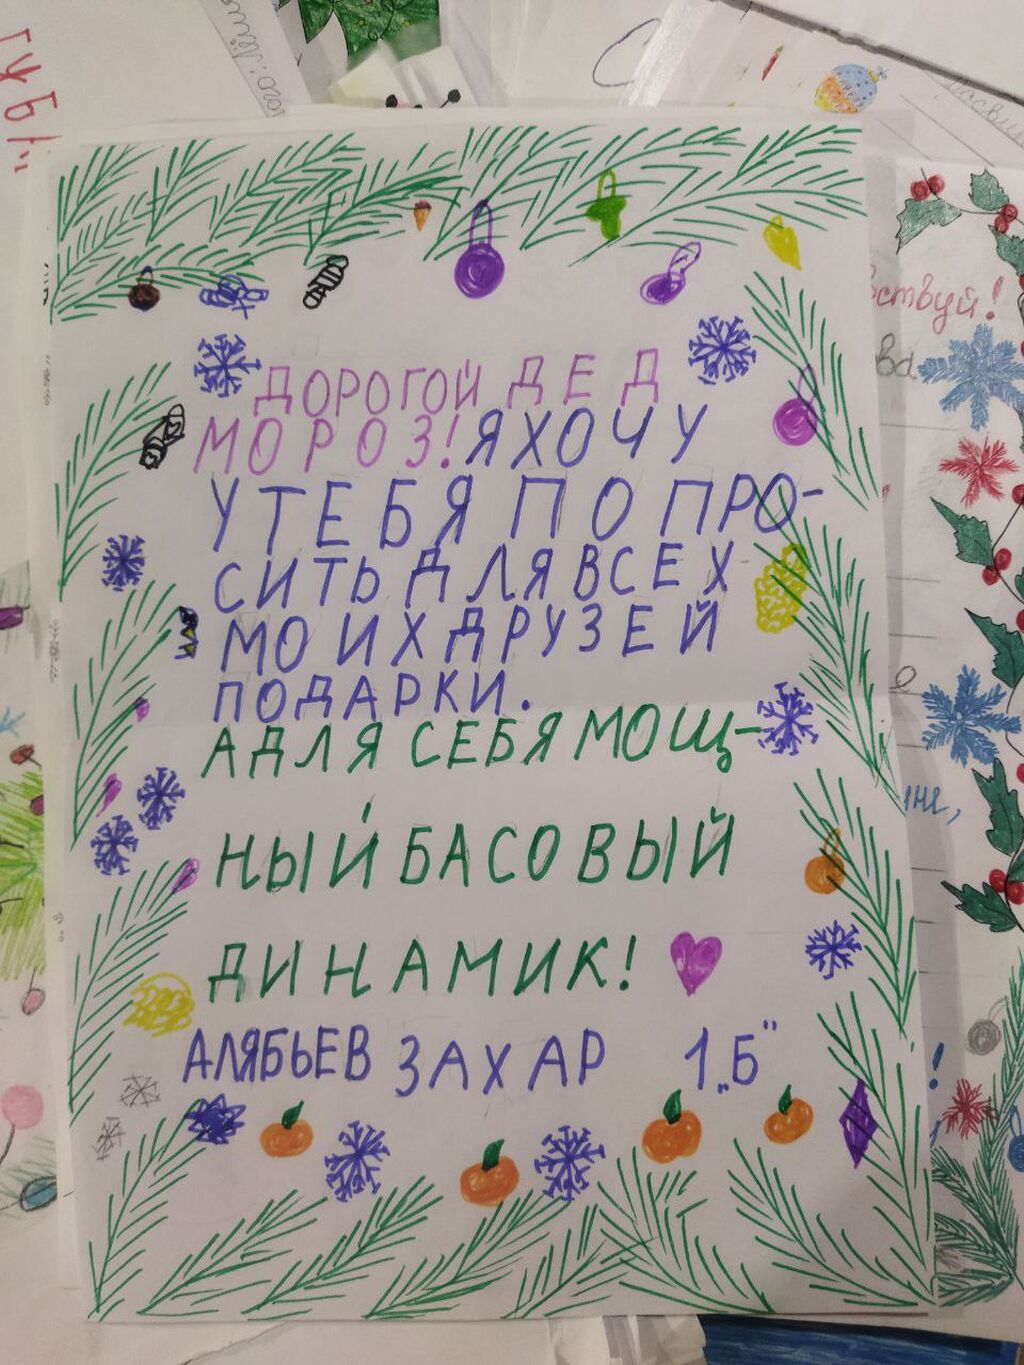 ДОРОГОЙ ДЕД
МОРОЗ! Я ХОЧУ
У ТЕБЯ ПОПРО-
СИТЬ ДЛЯ ВСЕХ
МОИХ ДРУЗЕЙ
ПОДАРКИ.
А ДЛЯ СЕБЯ МОЩ-
НЫЙ БАСОВЫЙ
ДИНАМИК!
АЛЯБЬЕВ ЗАХАР 1„Б"
ствуй!
ва
е